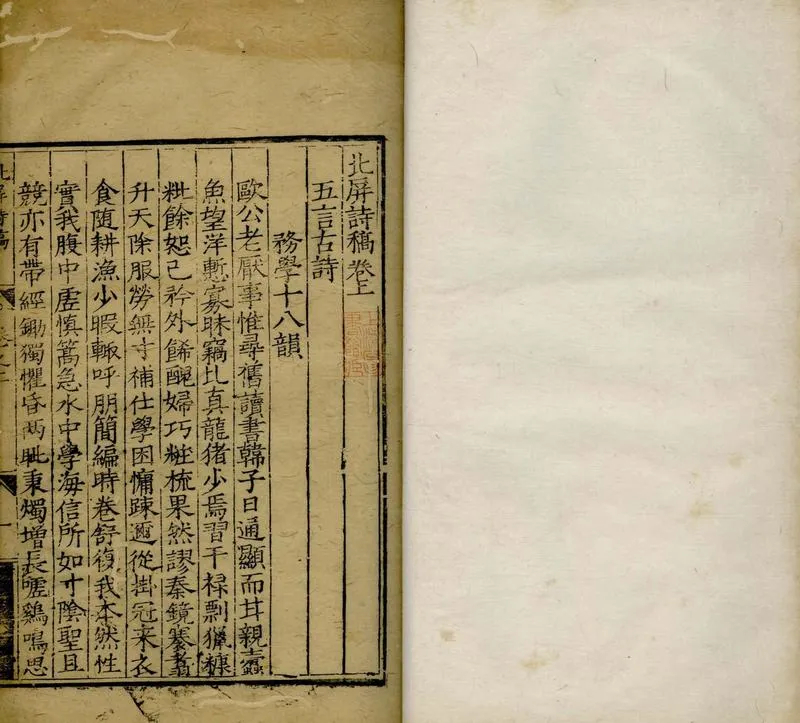 北屏詩稿卷上
五言古詩
務學十八韻
歐公老厭事惟尋舊讀書韓子日通顯而甘親蠹
魚望洋慙寡昧竊比真龍猪少焉習干祿剽獵糠
粃餘恕己矜外餙醜婦巧粧梳果然謬秦鏡蹇翥
升天除服勞無寸補仕學困慵踈邇從掛冠来衣
食随耕漁少暇輙呼朋簡編時卷舒復我本然性
實我腹中虗慎篙急水中學海信所如寸陰聖且
競亦有帶經鋤獨懼昏两眦秉燭增長嘘鷄鳴思
北屏詩稿